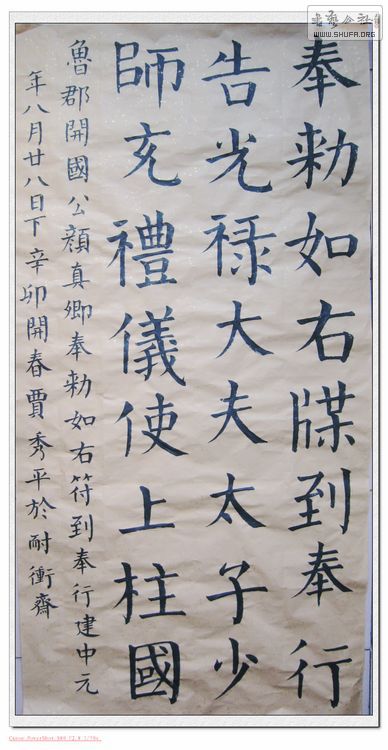 奉勅如右牒到奉行
告光禄大夫太子少
師充禮儀使上柱國
魯郡開國公顏真卿奉勅如右符到奉行建中元
年八月廿八日下 辛卯開春賈秀平於耐衝齋
WWW.SHUFA.ORG